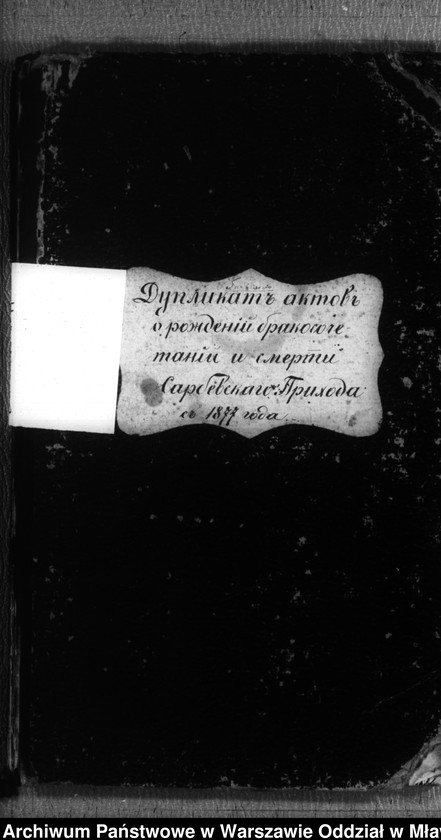 Дупликатъ актовъ
о рожденiй бракосоче-
танiй и смерти
Сарбевскаго Прихода
съ 1877 года
Archiwum Państwowe w Warszawie Oddział w Mła